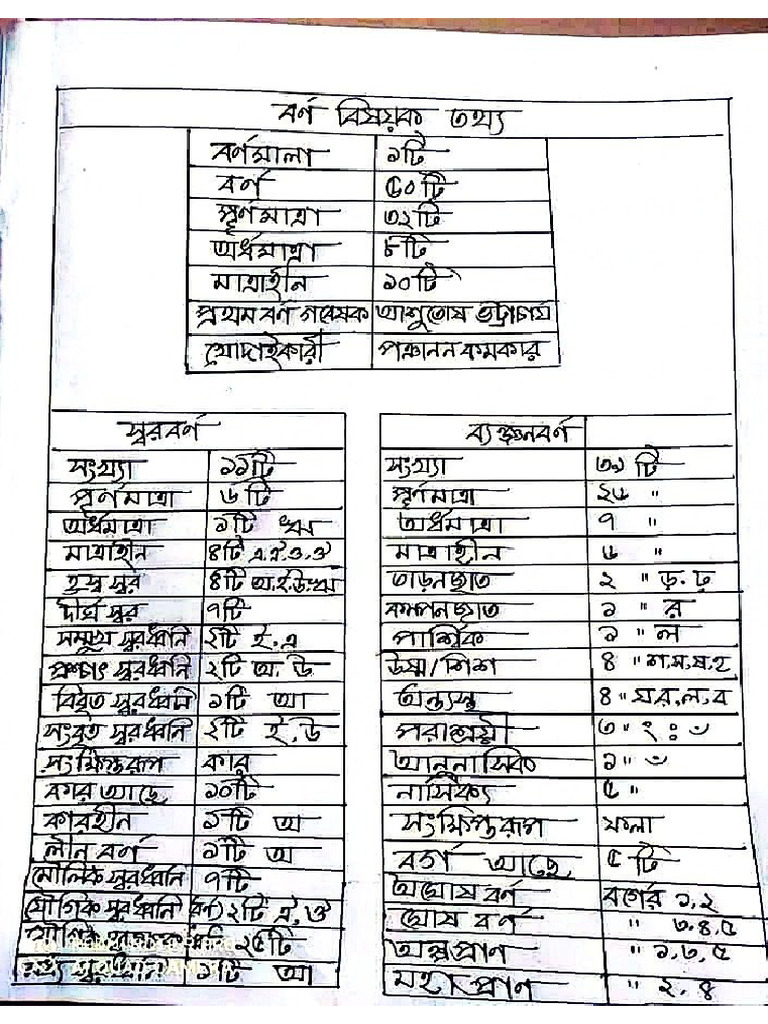 বর্ণ বিষয়ক তথ্য
বর্ণমালা ১টি
বর্ণ ৫০টি
পূর্ণমাত্রা ৩২টি
অর্ধমাত্রা ৮টি
মাত্রাহীন ১০টি
প্রথম বর্ণ গবেষক আশুতোষ ভট্টাচার্য
খোদাইকারী পঞ্চানন কর্মকার
স্বরবর্ণ
সংখ্যা ১১টি
পূর্ণমাত্রা ৬টি
অর্ধমাত্রা ১টি ঋ
মাত্রাহীন ৪টি এ,ঐ,ও,ঔ
হ্রস্ব স্বর ৪টি অ.ই.উ.ঋ
দীর্ঘ স্বর ৭টি
সম্মুখ স্বরধ্বনি ২টি ই.এ
পশ্চাৎ স্বরধ্বনি ২টি অ. উ
বিবৃত স্বরধ্বনি ১টি আ
সংবৃত স্বরধ্বনি ২টি ই.উ
সংক্ষিপ্তরূপ কার
কার আছে ১০টি
কারহীন ১টি অ
লীন বর্ণ ১টি অ
মৌলিক স্বরধ্বনি ৭টি
যৌগিক স্বরধ্বনি (বর্ণ) ২টি ঐ,ঔ
যৌগিক ২৫টি
মধ্য স্বরধ্বনি ১টি আ
ব্যঞ্জনবর্ণ
সংখ্যা ৩৯ টি
পূর্ণমাত্রা ২৬ "
অর্ধমাত্রা ৭ "
মাত্রাহীন ৬ "
তাড়নজাত ২ " ড়.ঢ়
কম্পনজাত ১ " র
পার্শ্বিক ১ " ল
উষ্ম/শিশ ৪ " শ.স.ষ.হ
অন্তঃস্থ ৪ " য.র.ল.ব
পরাশ্রয়ী ৩ " ং ঃ ঁ
আনুনাসিক ১ " ঁ
নাসিক্য ৫ "
সংক্ষিপ্তরূপ ফলা
বর্গ আছে ৫ টি
অঘোষ বর্ণ বর্গের ১,২
ঘোষ বর্ণ " ৩,৪,৫
অল্পপ্রাণ " ১,৩,৫
মহাপ্রাণ " ২,৪